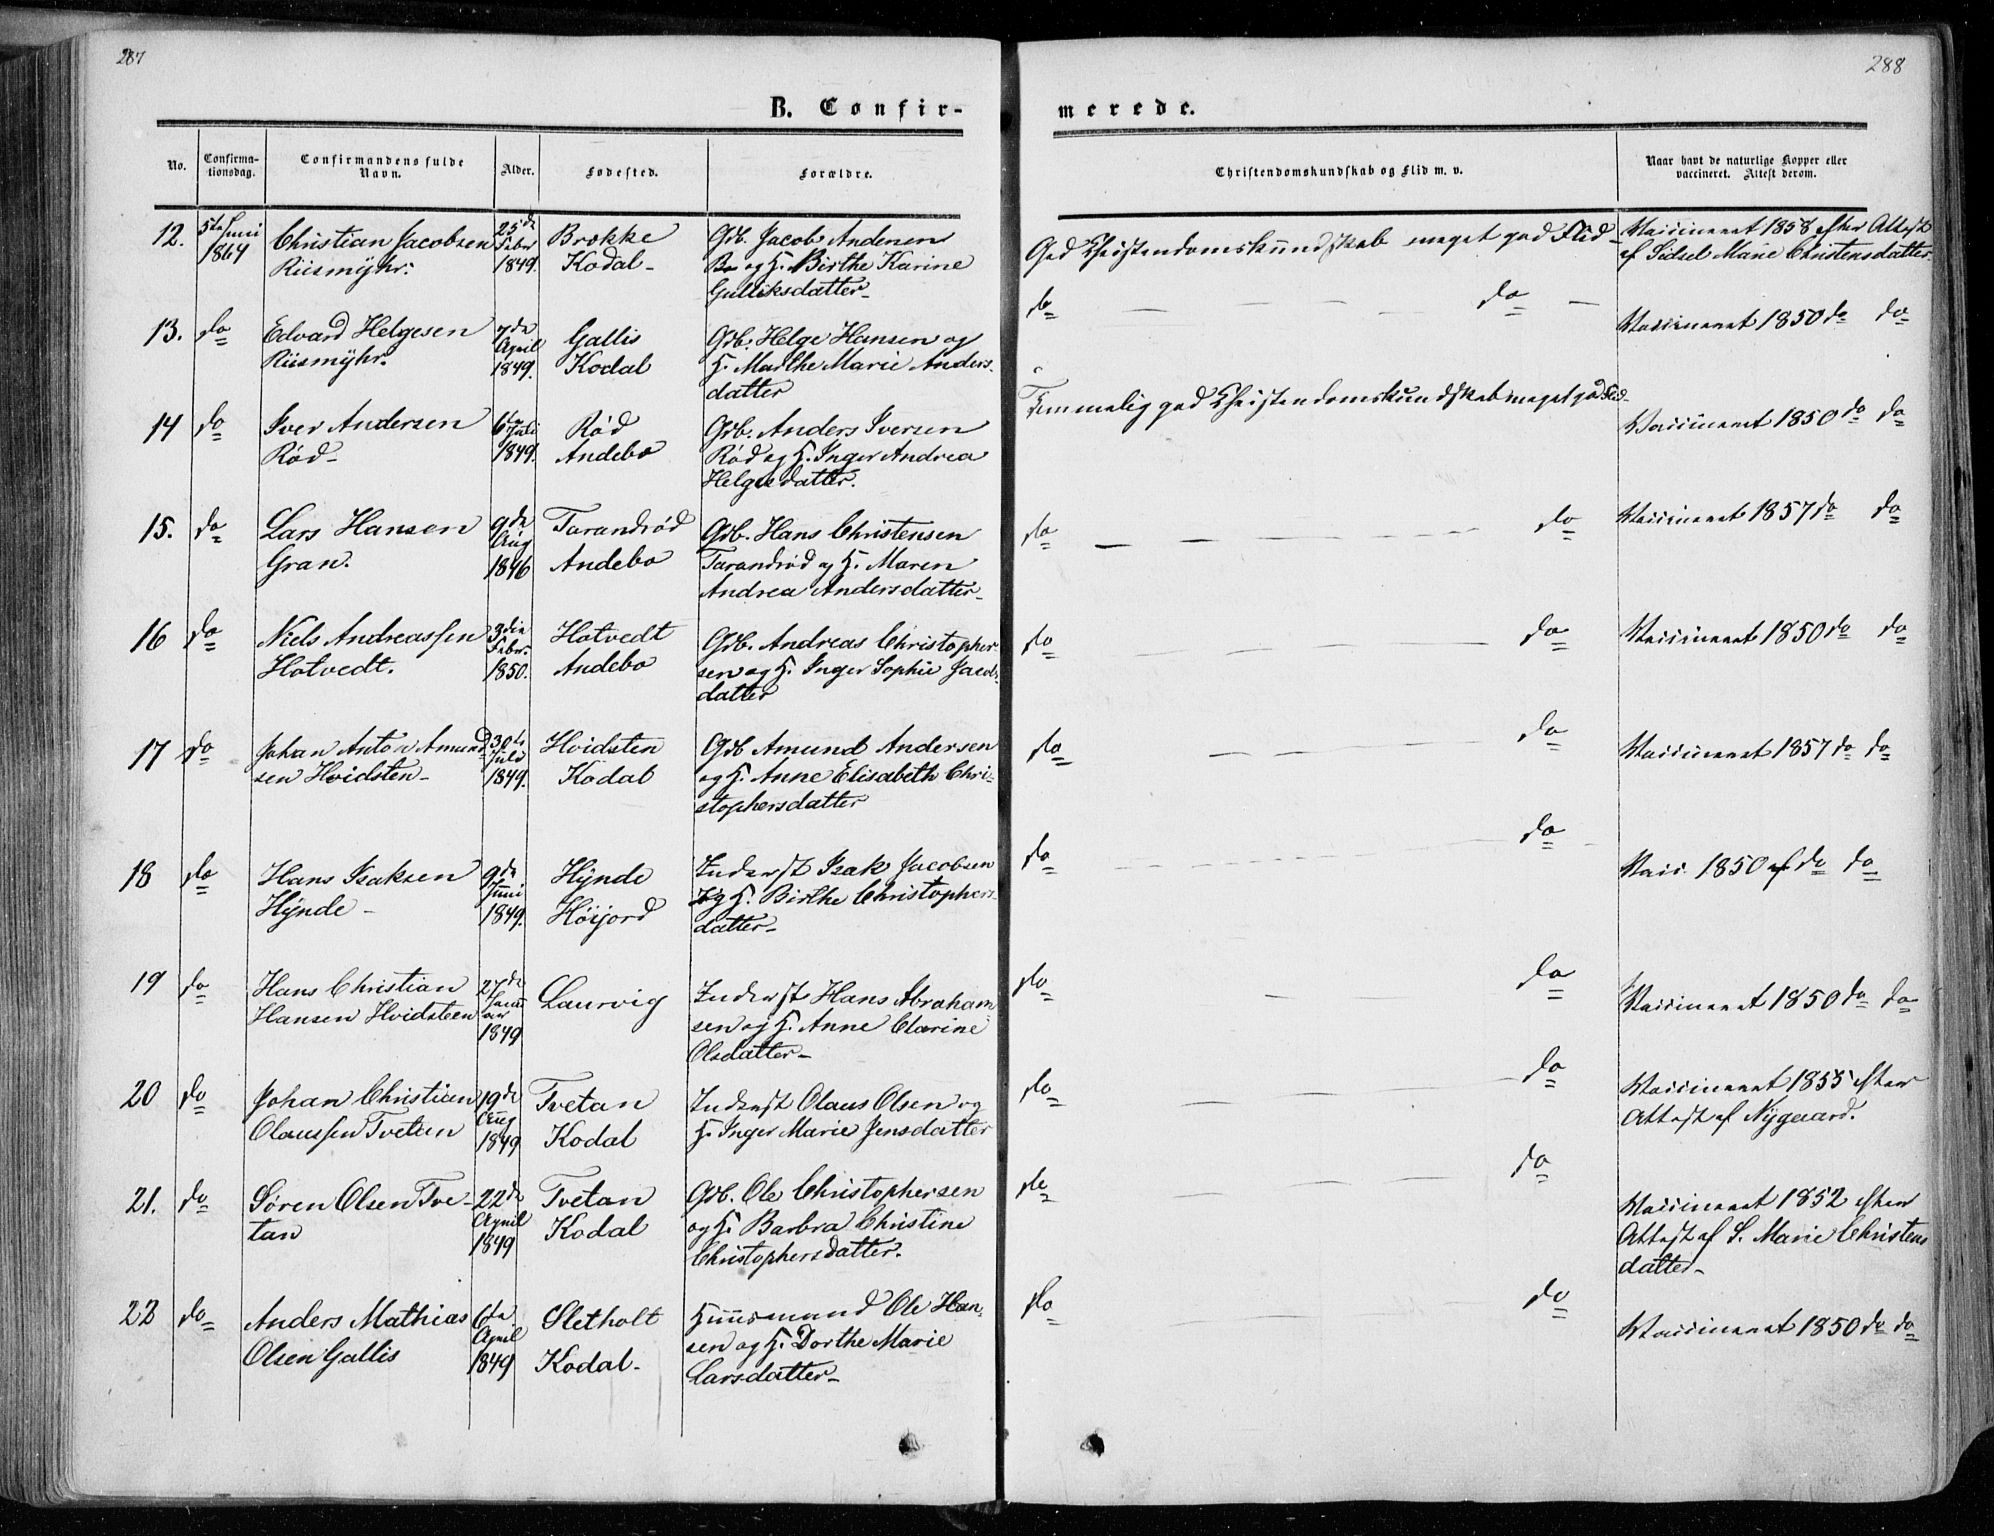 287
288
B. Confir-
merede.
No.
Confirma-
tionsdag.
Confirmandens fulde
Navn.
Alder.
Fødested.
Forældre.
Christendomskundskab og Flid m. v.
Naar havt de naturlige Kopper eller
vaccineret. Attest derom.
12.
5te Juni
1864
Christian Jacobsen
Riismÿhr.
25de
Febr
1849.
Brekke
Kodal
Gdb. Jacob Andersen
og H. Birthe Karine
Gulliksdatter
God Christendomskundskab meget god Flid
Vaccineret 1858 efter Attest
af Sidsel Marie Christensdatter
13.
do
Edvard Helgesen
Riismÿhr.
7de
April
1849.
Gallis
Kodal
Gdb. Helge Hansen og
H. Marthe Marie Anders-
datter
do
do
Vaccineret 1850 do do
14
do
Iver Andersen
Rød
6te
Juli
1849.
Rød
Andebo
Gdb. Anders Iversen
Rød og H. Inger Andrea
Helgesdatter.
Temmelig god Christendomskundskab meget god Flid
Vaccineret 1850 do do
15.
do
Lars Hansen
Gran.
9de
Aug
1846
Tarandrød
Andebo
Gdb. Hans Christensen
Tarandrød og H. Maren
Andrea Andersdatter
do
do
Vaccineret 1857 do do
16
do
Niels Andreassen
Hotvedt.
Febr.
1850.
Hotvedt
Andebo
Gdb. Andreas Christopher-
sen og H. Inger Sophie Jacobs-
datter
do
do
Vaccineret 1850 do do
17
do
Johan Anton Amund-
sen Hvidsten
30te
Juli
1849.
Hvidsten
Kodal
Gdb Amund Andersen
og H. Anne Elisabeth Chri-
stophersdatter
do
do
Vaccineret 1857 do do
18
do
Hans Isaksen
Hÿnde
9de
Juni
1849.
Hÿnde
Höijord
Inderst Isak Jacobsen
og H. Birthe Christophers-
datter
do
do
Vacc. 1850 af do do
19
do
Hans Christian
Hansen Hvidsteen
27de
Janu
ar
1849
Laurvig
Inderst Hans Abraham-
sen og H. Anne Clarine
Olsdatter
do
do
Vaccineret 1850 do do
20
do
Johan Christian
Olaussen Tvetan
19de
Aug
1849
Tvetan
Kodal
Inderst Olaus Olsen og
H. Inger Marie Jensdatter
do
do
Vaccineret 1855 efter
Attest af Nÿgaard.
21.
do
Søren Olsen Tve-
tan
22de
April
1849
Tvetan
Kodal
Gdb. Ole Christophersen
og H. Barbra Christine
Christophersdatter.
do
do
Vaccineret 1852 efter
Attest af S. Marie Christens
datter
22
do
Anders Mathias
Olsen Gallis
6te
April
1849
Sletholt
Kodal
Huusmand Ole Han-
sen og H. Dorthe Marie
Larsdatter
do
do
Vaccineret 1850 do do